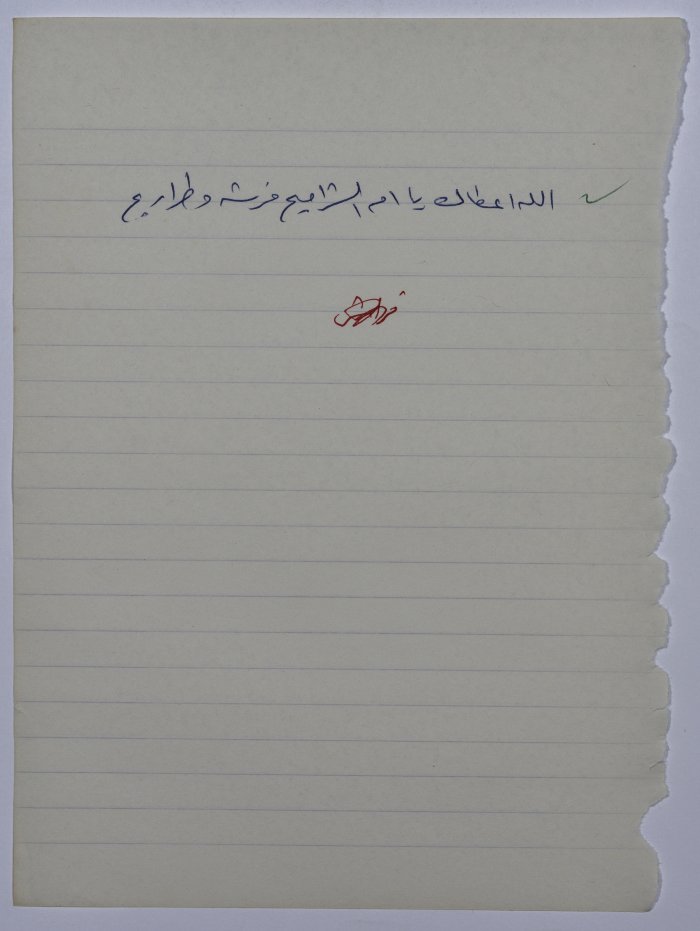 الله اعطاك يا ام الشراميح فرشه و طراريح